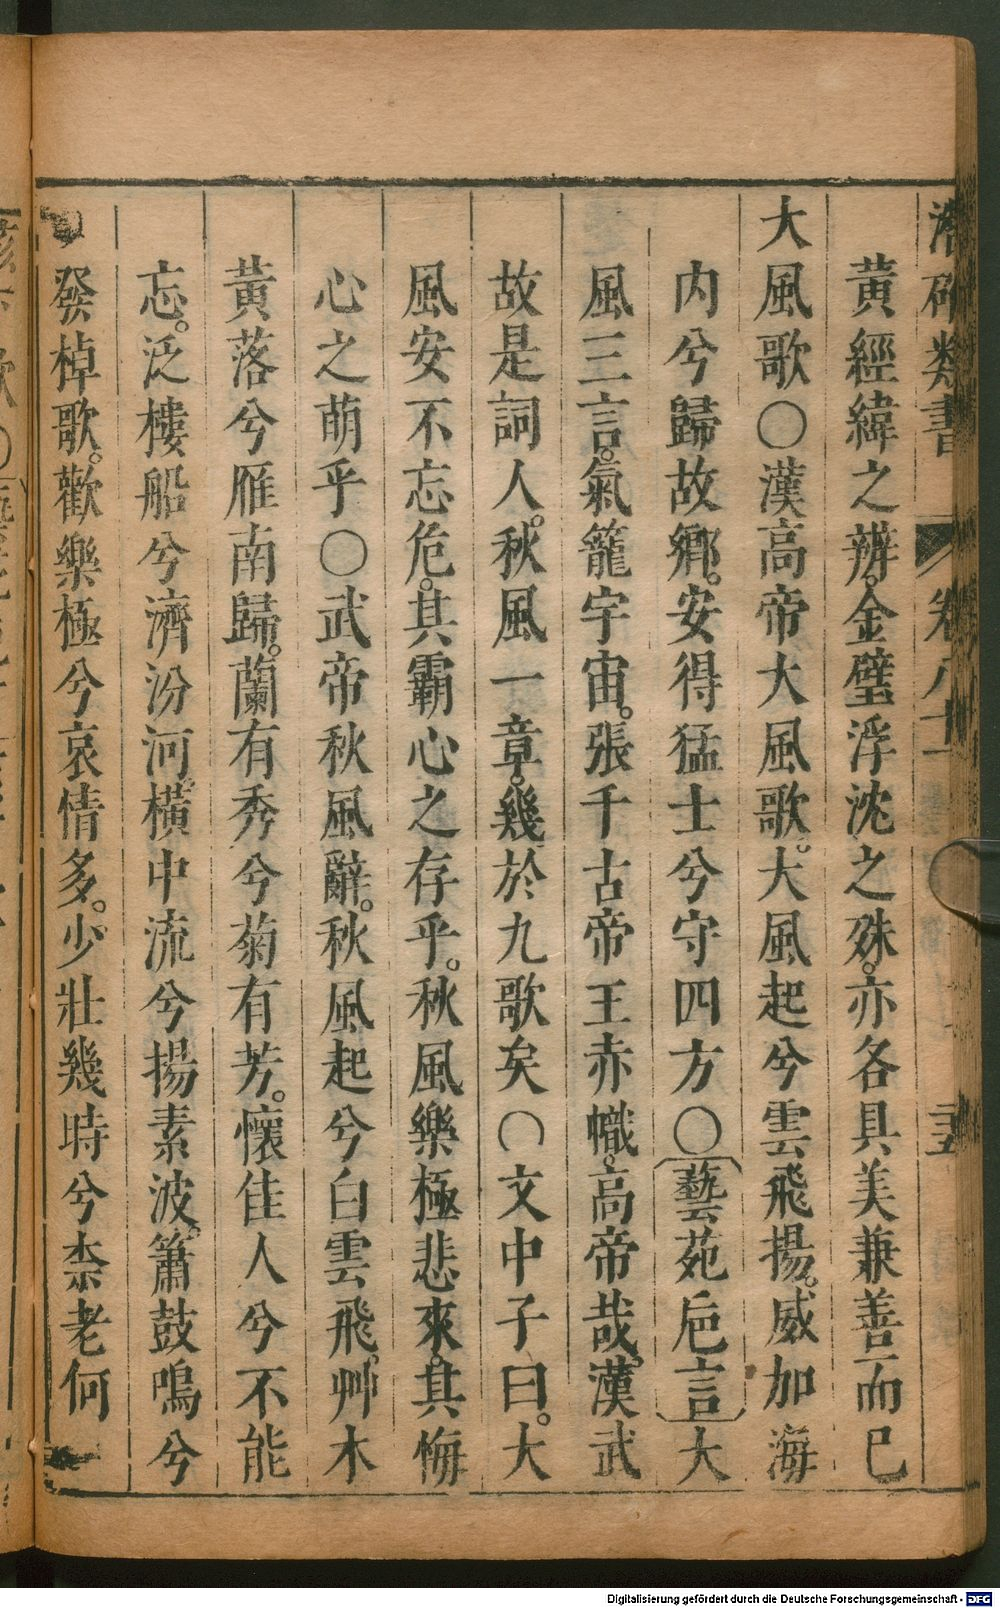 潛確類書 卷八十 三五
黃經緯之辨。金璧浮沈之殊。亦各具美兼善而已
大風歌〇漢高帝大風歌。大風起兮雲飛揚。威加海
内兮歸故鄉。安得猛士兮守四方〇藝苑巵言大
風三言。氣籠宇宙。張千古帝王赤幟。高帝哉。漢武
故是詞人。秋風一章。幾於九歌矣〇文中子曰。大
風安不忘危。其霸心之存乎。秋風樂極悲來。其悔
心之萌乎〇武帝秋風辭。秋風起兮白雲飛。艸木
黃落兮雁南歸。蘭有秀兮菊有芳。懷佳人兮不能
忘。泛樓船兮濟汾河。橫中流兮揚素波。簫鼓鳴兮
發棹歌。歡樂極兮哀情多。少壯幾時兮柰老何
Digitalisierung gefördert durch die Deutsche Forschungsgemeinschaft - DFG